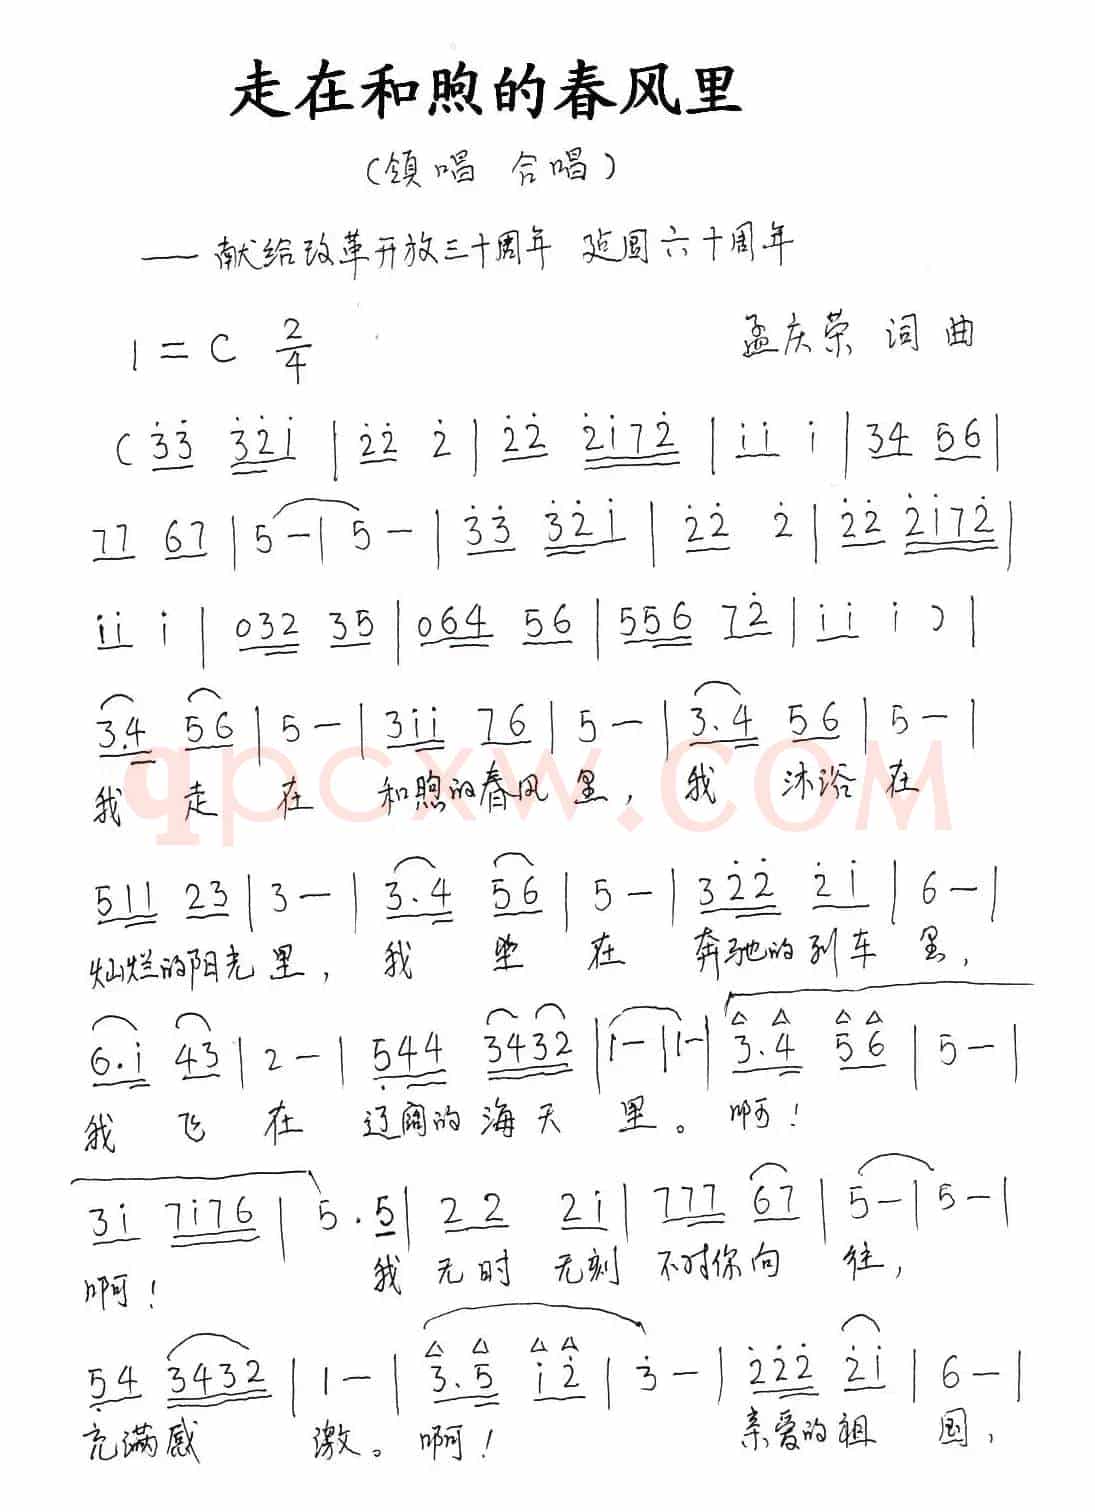 走在和煦的春风里
(领唱 合唱)
—— 献给改革开放三十周年 建国六十周年
1 = C 2/4
孟庆荣 词曲
( 3̇3̇ 3̇2̇i | 2̇2̇ 2̇ | 2̇2̇ 2̇i72̇ | ii i | 34 56 |
77 67 | 5 — | 5 — | 3̇3̇ 3̇2̇i | 2̇2̇ 2̇ | 2̇2̇ 2̇i72̇ |
ii i | 032 35 | 064 56 | 556 72̇ | ii i ) |
3.4 56 | 5 — | 3ii 76 | 5 — | 3.4 56 | 5 — |
我 走 在 和煦的春风 里, 我 沐浴 在
511 23 | 3 — | 3.4 56 | 5 — | 32̇2̇ 2̇i | 6 — |
灿烂的阳光里, 我 坐 在 奔驰的列车 里,
6.i 43 | 2 — | 5̣44 3432 | 1 — | 1 — | 3.4 56 | 5 — |
我 飞 在 辽阔的 海 天 里。 啊!
qpcxw.COM
3i 7i76 | 5.5 | 22 2i | 777 67 | 5 — | 5 — |
啊! 我 无时 无刻 不对你向 往,
5̣4 3432 | 1 — | 3.5 i2̇ | 3̇ — | 2̇2̇2̇ 2̇i | 6 — |
充满感 激。 啊! 亲爱的祖 国,